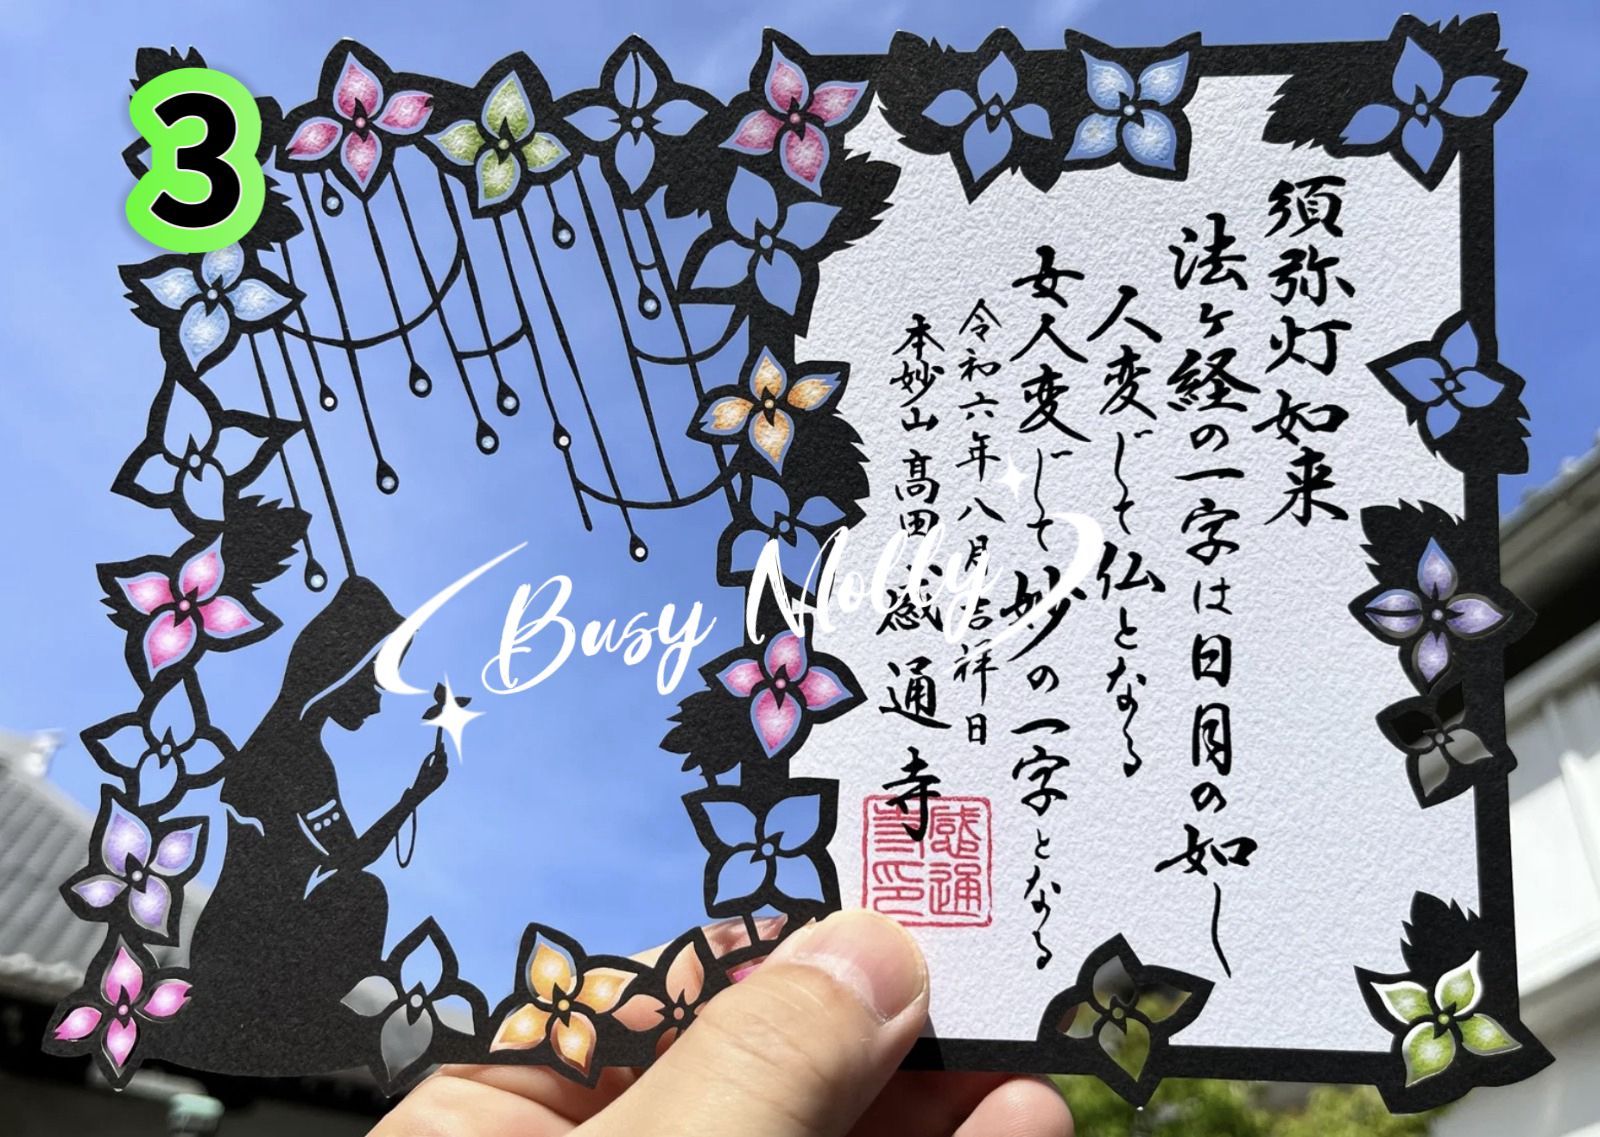 3
須弥灯如来
法ヶ経の一字は日月の如し
人変じて仏となる
女人変じて妙の一字となる
令和六年八月吉祥日
本妙山 髙田 感通寺
感通
寺印
Busy Molly